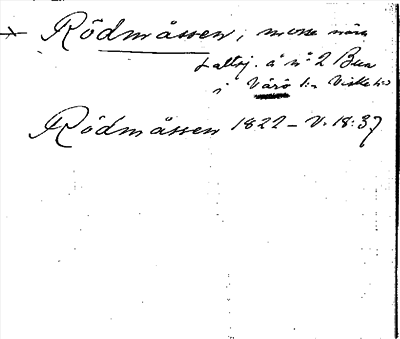 Rödmåssen, mosse nära
Lattsj. å nº 2 Bua
i Värö sn Viske hd
Rödmåssen 1822 – V. 18:37